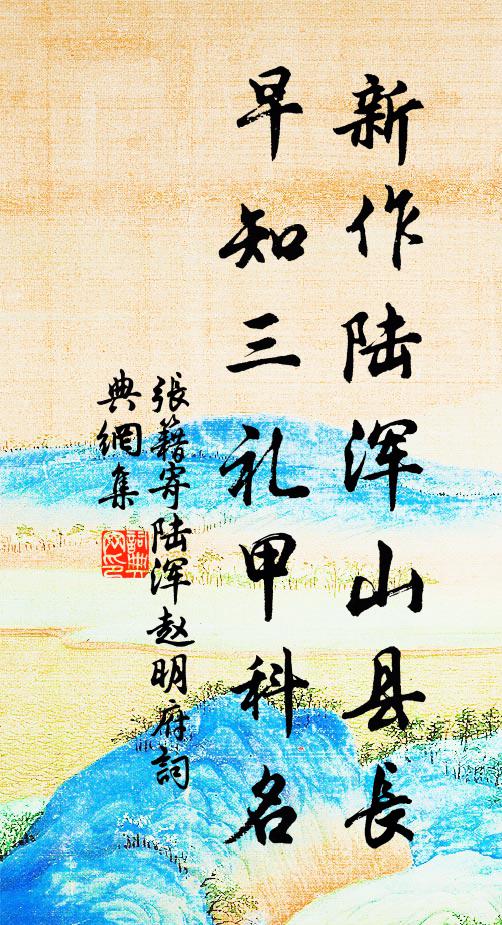 新作陆浑山县长
早知三礼甲科名
張籍寄陆浑赵明府詞
典網集
詞典
网印